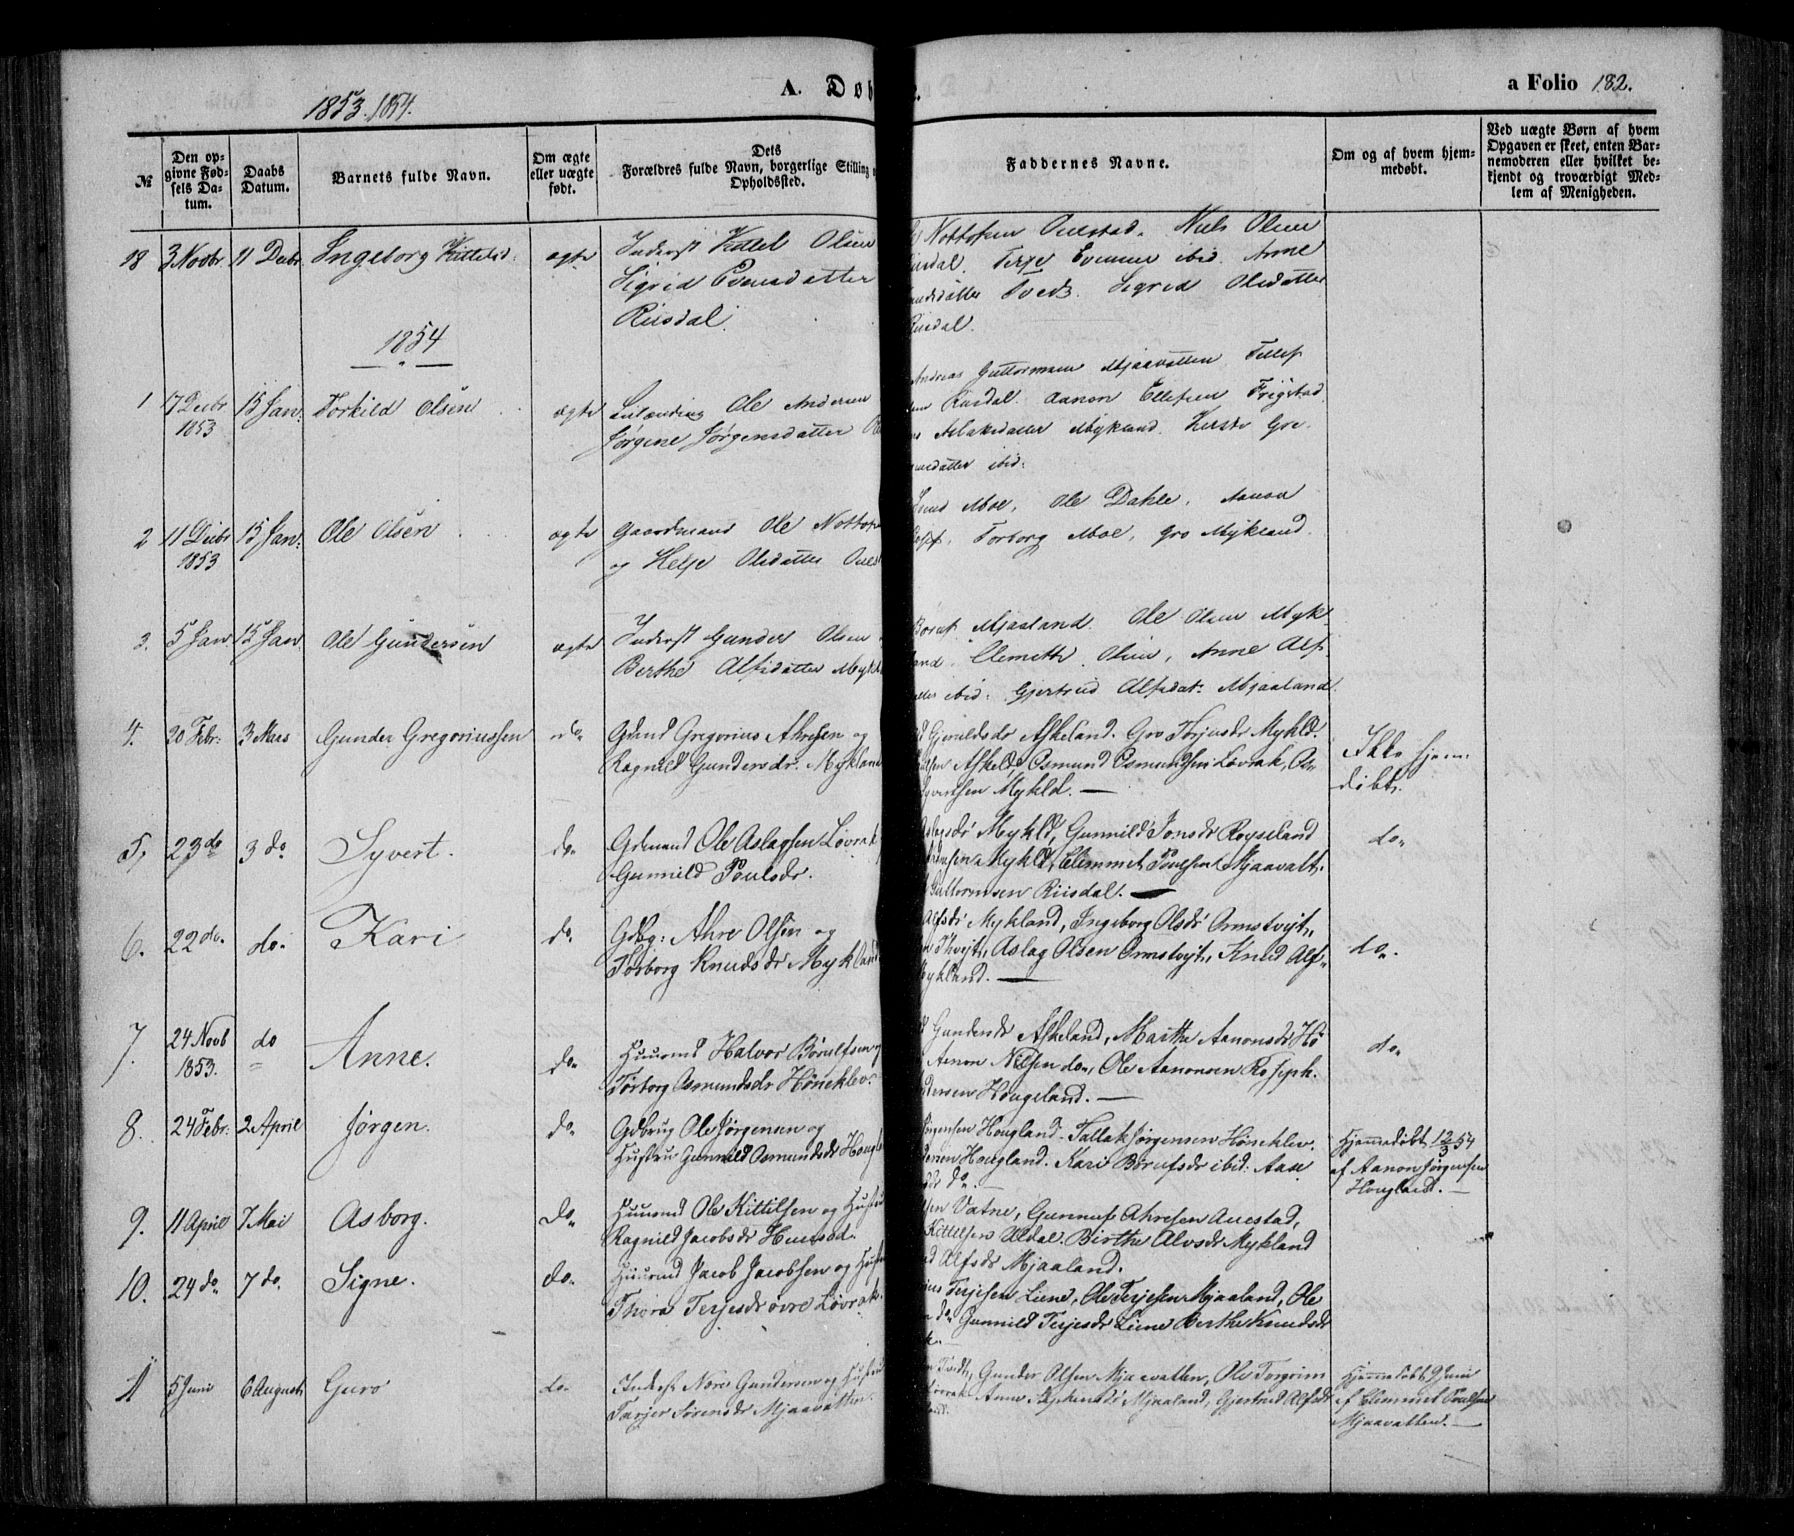 1853. 1854.
A. Døb
a Folio 182.
№
Den opgivne Fødsels Datum.
Daabs Datum.
Barnets fulde Navn.
Om ægte eller uægte født.
Dets Forældres fulde Navn, borgerlige Stilling
Opholdssted.
Faddernes Navne.
Om og af hvem hjemmedøbt.
Ved uægte Børn af hvem Opgaven er skeet, enten Barnemoderen eller hvilket bekjendt og troværdigt Medlem af Menigheden.
18 3 Novbr 11 Decbr Ingeborg Kittelsd. ægte Inderst Kittel Olsen
Sigrid Evensdatter
Riisdal.
Nottosen Ouestad. Niels Olsen
Terje Evensen ibid. Anne
Tvedt. Sigrid Olsdatter
Riisdal.
1854
1 17 Decbr 1853 15 Jan. Torkild Olsen ægte Ole Andersen
Jørgine Jørgensdatter
Andreas Guttormsen Mjaavatten Tellef
Riisdal. Aanon Ellefsen Frigstad
Aslaksdatter Mykland. Kirste Gre
datter ibid.
2 11 Decbr 1853 15 Jan. Ole Olsen ægte Gaardmand Ole Nottos
og Helje Olsdatter Oues
Moe, Ole Dahle, Aanon
Torborg Moe, Gro Mykland.
3. 5 Jan 15 Jan Ole Gundersen ægte Inderst Gunder Olsen
Berthe Alfsdatter Mykl
Mjaaland. Ole Olsen Myk-
land. Clemetto Olsen, Anne Alfs
ibid. Gjertrud Alfsdat. Mjaaland.
4. 20 Febr. 3 Mars Gunder Gregoriussen do Gdmd Gregorius Ahresen og
Ragnild Gundersdr. Mykland
Askeland. Gro Terjusdr Mykld.
Askeld Osmund Osmundsen Løvrak, Os-
Mykld. —
Ikke hjem-
døbt.
5. 23 do 3 do Syvert. do. Gdmand Ole Aslagsen Løvrak
Gunnild Poulsdr.
Mykld, Gunnild Jonsdr Røyseland
Mykld, Clemmet Poulsen Mjaavatt.
Guttormsen Riisdal. —
do.
6. 22 do. do. Kari do. Gdbg. Ahre Olsen og
Torborg Knudsdr Mykland
Alfsdr Mykland, Ingeborg Olsdr Ormstvejt,
Aslag Olsen Ormstvejt, Knud Alf-
Mykland. —
do.
7. 24 Novb 1853. do Anne. do. Huusmd Halvor Børulfsen
Torborg Asmundsdr Hønekløv.
Gundersdr Askeland, Marthe Aanonsdr Hø
Aanon Nilsen do, Ole Aanonsen Roseph.
Hougeland. —
do.
8. 24 Febr. 2 April Jørgen. do. Gdbrug Ole Jørgensen og
Hustru Gunnild Osmundsdr Hougl
Jørgensen Hougland. Tallak Jørgensen Hønekløv.
Hougland. Kari Børufsdr ibid. Aase
do.
Hjemmedøbt 12/3 54
af Aanon Jørgensen
Hougland. —
9. 11 April 7 Mai Asborg. do. Huusmd Ole Kittilsen og Hustru
Ragnild Jacobsdr Heimod.
Vatne, Gunnuf Ahresen Auestad,
Kittilsen Uldal. Birthe Alvsdr Mykland
Alfsdr Mjaaland.
10. 24 do. 7 do. Signe. do. Huusmd Jacob Jacobsen og Hust
Thora Terjesdr øvre Løvrak.
Terjesen Liene, Ole Terjesen Mjaaland, Ole
do Gunnild Terjesdr Liene Berthe Knudsdr
11 5 Juni 6 August Guro do. Inderst Nore Gundersen og Hustru
Tarjer Sørensdr Mjaavatten.
Tvedt, Gunder Olsen Mjaavatten, Ole Torgrim
Løvrak Anne Mjaaland, Gjertrud Alfsdr
Hjemmedøbt 9 Juni
af Clemmet Poulsen
Mjaavatten. —